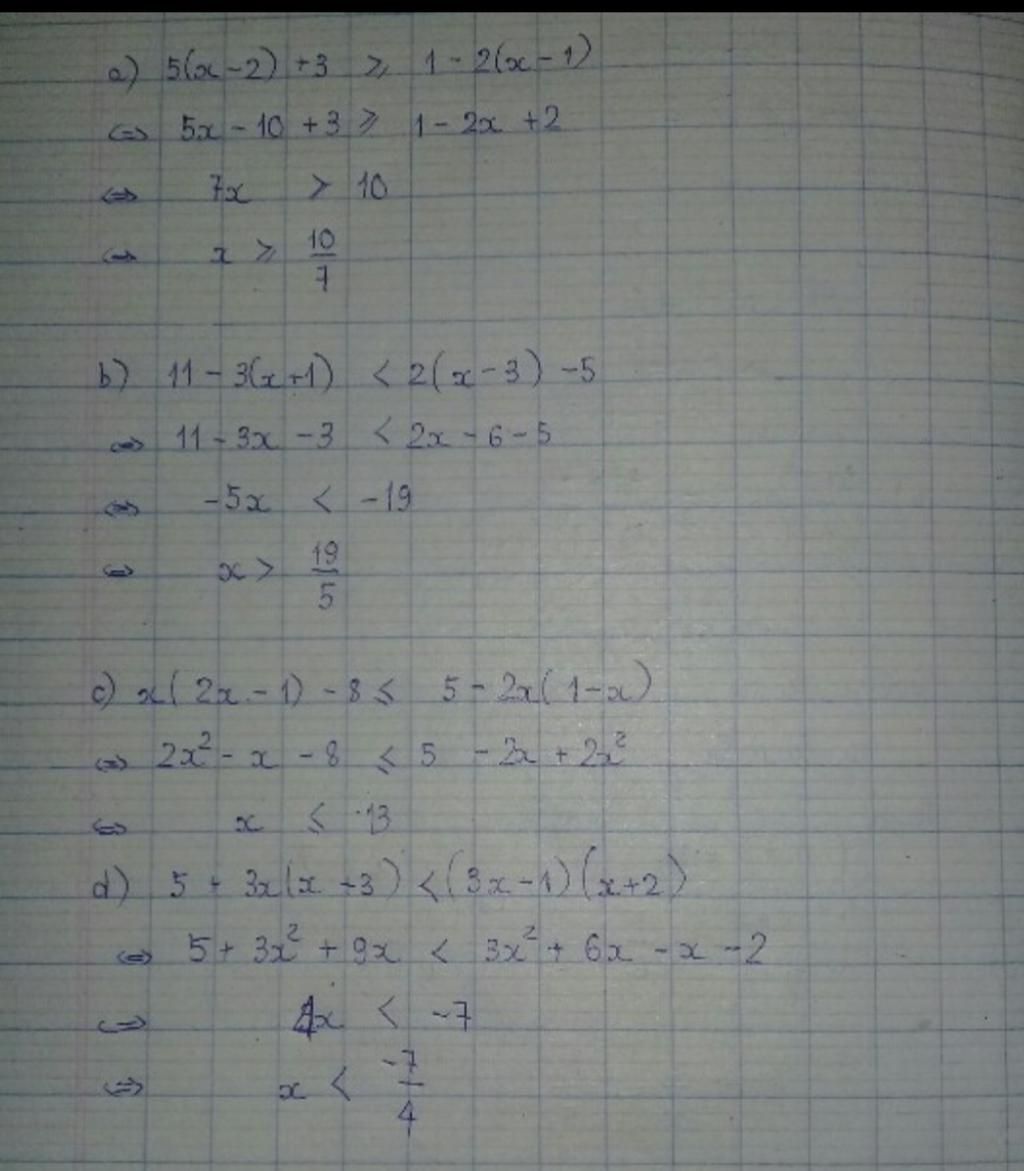 a) 5(x-2) +3 ⩾ 1 - 2(x-1)
⇔ 5x - 10 + 3 ⩾ 1 - 2x + 2
⇔ 7x > 10
⇔ x ⩾ 10/7
b) 11 - 3(x+1) < 2(x-3) -5
⇔ 11 - 3x - 3 < 2x - 6 - 5
⇔ -5x < -19
⇔ x > 19/5
c) x(2x-1) - 8 ⩽ 5 - 2x(1-x)
⇔ 2x² - x - 8 ⩽ 5 - 2x + 2x²
⇔ x ⩽ 13
d) 5 + 3x(x+3) < (3x-1)(x+2)
⇔ 5 + 3x² + 9x < 3x² + 6x - x - 2
⇔ 4x < -7
⇔ x < -7/4